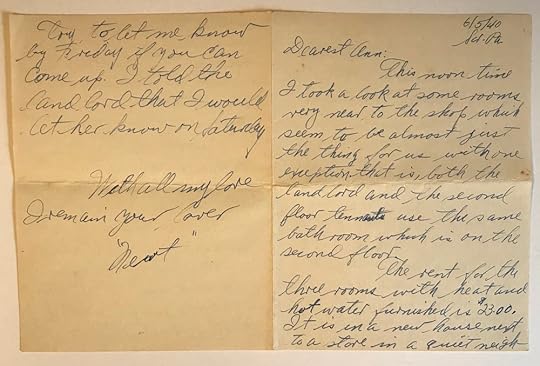 6/5/40
Scr. Pa.
Dearest Ann:
This noon time
I took a look at some rooms
very near to the shop which
seem to be almost just
the thing for us with one
exception that is, both the
land lord and the second
floor tennants use the same
bath room which is on the
second floor.
The rent for the
three rooms with heat and
hot water furnished is $23.00.
It is in a new house next
to a store in a quiet neigh
Try to let me know
by Friday if you can
come up. I told the
land lord that I would
let her know on Saturday
With all my love
I remain your lover
"Newt"